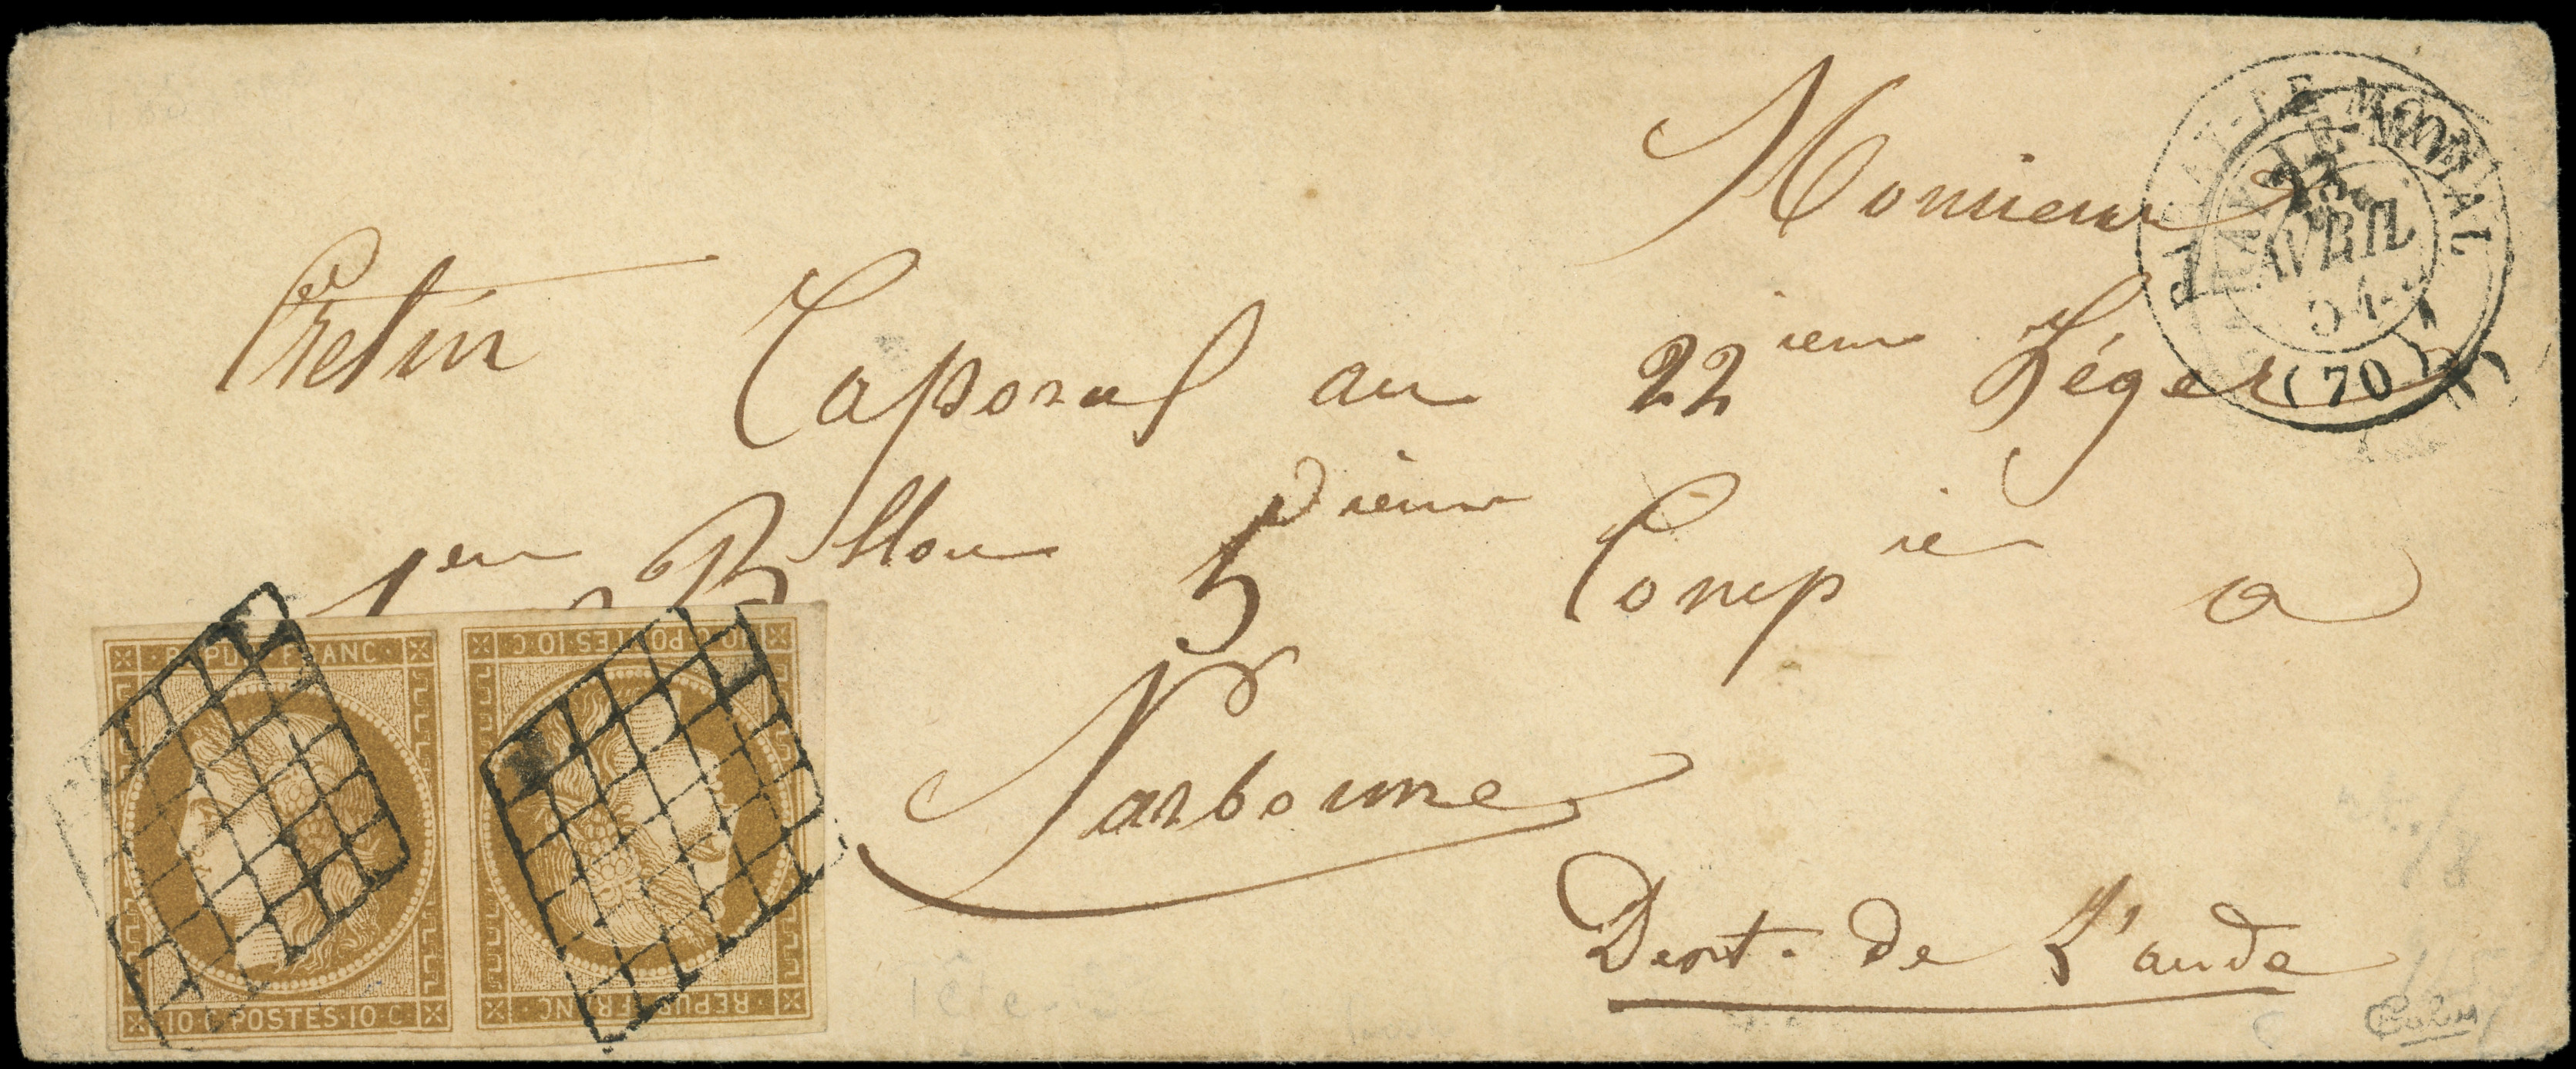 Monsieur
Cretin Caporal au 22ieme Léger
1er Bllon 5ieme Compie a
Narbonne
Dept. de L'aude
PARAY-LE-MONIAL
AVRIL
51
(70)
REPUB FRANC
10·C·POSTES·10·C
10·C·POSTES·10·C
REPUB FRANC
Calves